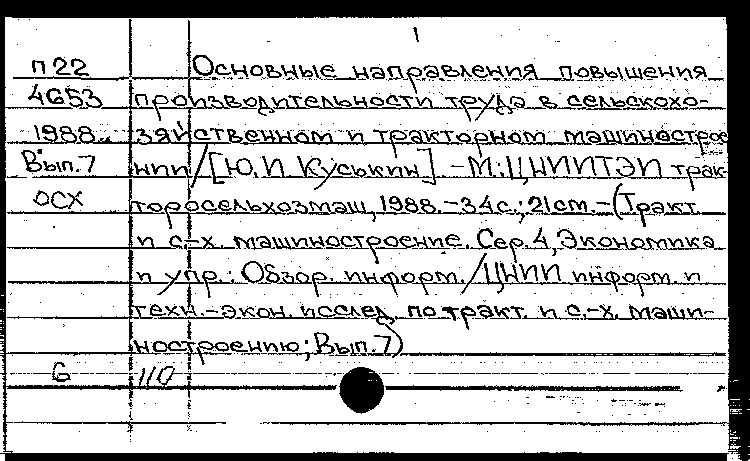 1
п 22 Основные направления повышения
4653 производительности труда в сельскохо-
1988.. зяйственном и тракторном машинострое
Вып.7 нии/[Ю.И. Куськин]. -М.:ЦНИИТЭИ трак
ОСХ торосельхозмаш, 1988.-34с.; 21см.-(Тракт.
и с.-х. машиностроение. Сер.4, Экономика
и упр.: Обзор. информ./ЦНИИ информ. и
техн.-экон. исслед. по тракт. и с.-х. маши-
ностроению; Вып.7)
6 110